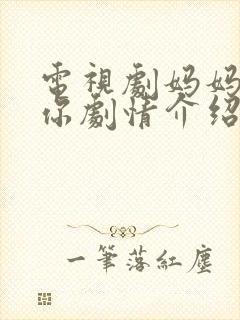 電視劇媽媽
你劇情介紹
一筆落紅塵